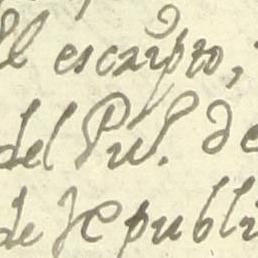 el escripto,
del Pul. de
de Republi